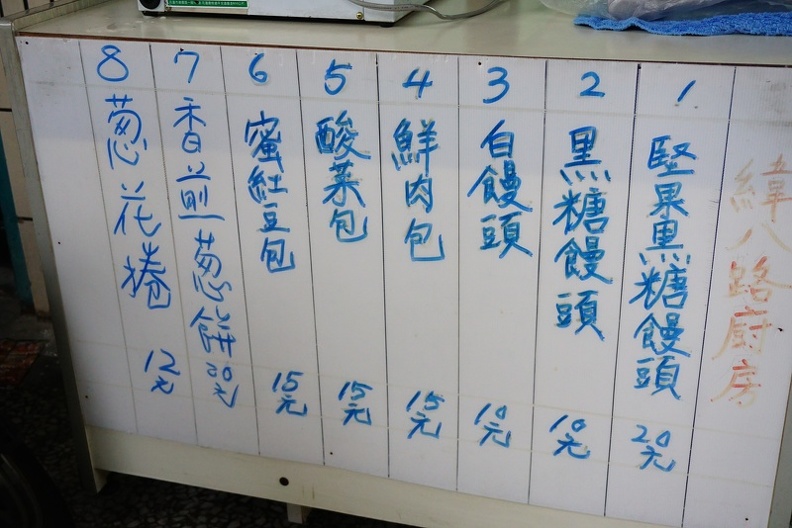 緯八路廚房
1 堅果黑糖饅頭 20元
2 黑糖饅頭 10元
3 白饅頭 10元
4 鮮肉包 15元
5 酸菜包 15元
6 蜜紅豆包 15元
7 香煎蔥餅 20元
8 蔥花捲 12元